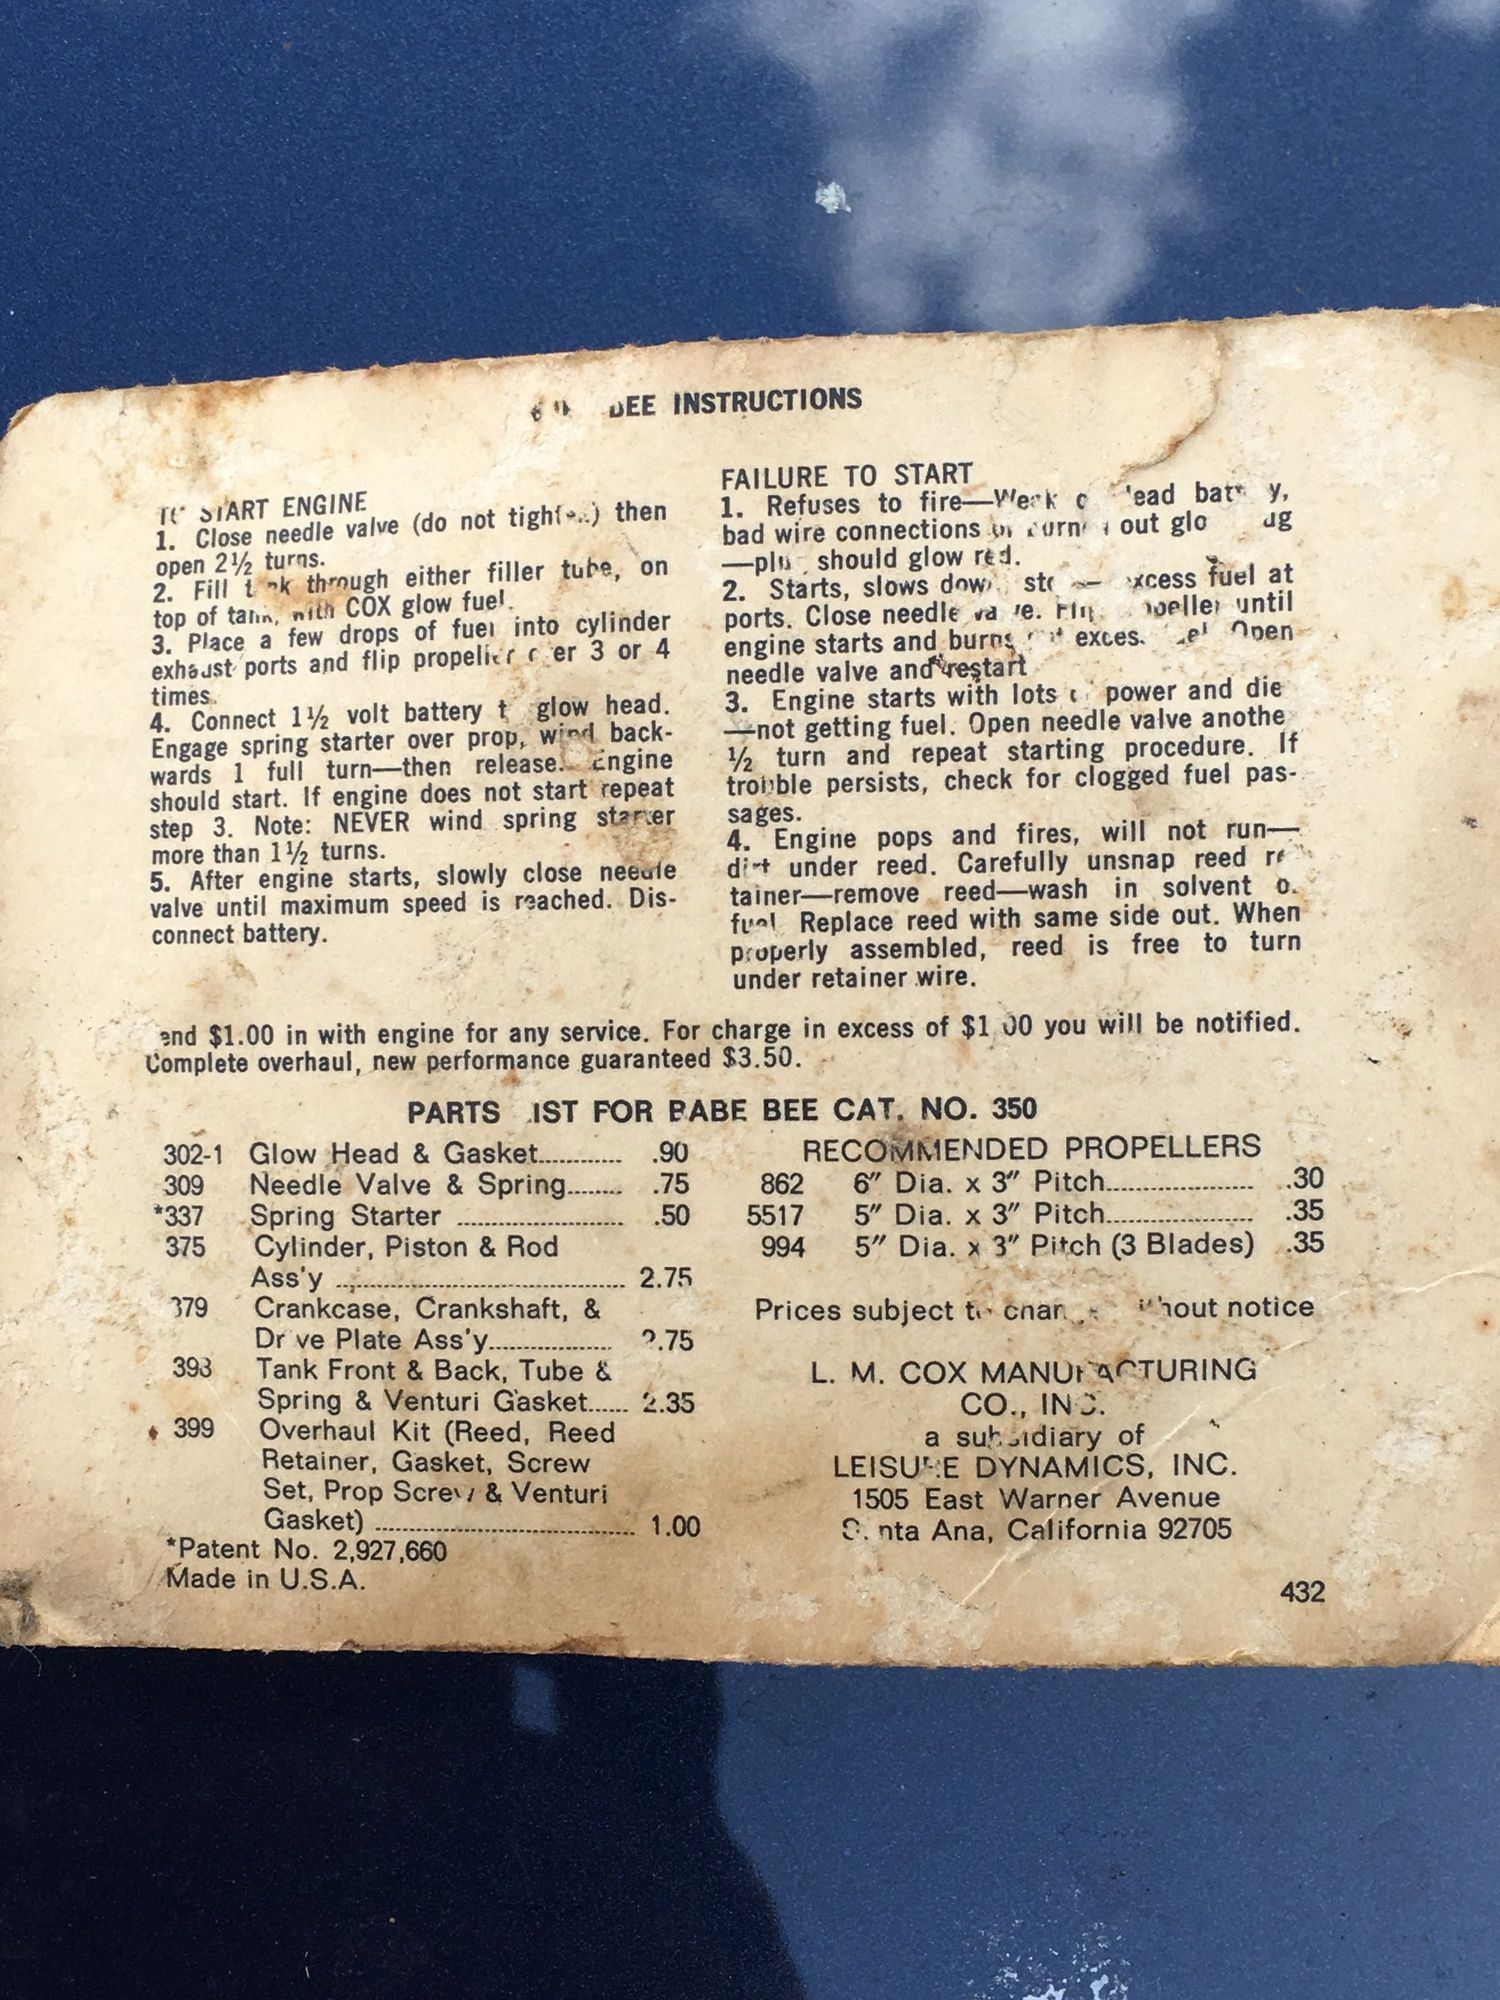 BEE INSTRUCTIONS
TO START ENGINE
1. Close needle valve (do not tighten) then
open 2½ turns.
2. Fill tank through either filler tube, on
top of tank, with COX glow fuel.
3. Place a few drops of fuel into cylinder
exhaust ports and flip propeller over 3 or 4
times.
4. Connect 1½ volt battery glow head.
Engage spring starter over prop, wind back-
wards 1 full turn—then release. Engine
should start. If engine does not start repeat
step 3. Note: NEVER wind spring starter
more than 1½ turns.
5. After engine starts, slowly close needle
valve until maximum speed is reached. Dis-
connect battery.
FAILURE TO START
1. Refuses to fire—Weak dead battery,
bad wire connections or burned out
—plug should glow red.
2. Starts, slows down, excess fuel at
ports. Close needle valve. Flip propeller until
engine starts and burns out excess fuel. Open
needle valve and restart
3. Engine starts with lots of power and die
—not getting fuel. Open needle valve anothe
½ turn and repeat starting procedure. If
trouble persists, check for clogged fuel pas-
sages.
4. Engine pops and fires, will not run—
dirt under reed. Carefully unsnap reed re-
tainer—remove reed—wash in solvent or
fuel. Replace reed with same side out. When
properly assembled, reed is free to turn
under retainer wire.
end $1.00 in with engine for any service. For charge in excess of $1.00 you will be notified.
Complete overhaul, new performance guaranteed $3.50.
PARTS LIST FOR BABE BEE CAT. NO. 350
302-1 Glow Head & Gasket............ .90
309 Needle Valve & Spring........ .75
*337 Spring Starter ........................ .50
375 Cylinder, Piston & Rod
Ass'y .......................................... 2.75
379 Crankcase, Crankshaft, &
Drive Plate Ass'y.................. 2.75
393 Tank Front & Back, Tube &
Spring & Venturi Gasket...... 2.35
399 Overhaul Kit (Reed, Reed
Retainer, Gasket, Screw
Set, Prop Screw & Venturi
Gasket) ...................................... 1.00
*Patent No. 2,927,660
Made in U.S.A.
RECOMMENDED PROPELLERS
862 6" Dia. x 3" Pitch..................... .30
5517 5" Dia. x 3" Pitch..................... .35
994 5" Dia. x 3" Pitch (3 Blades) .35
Prices subject to change without notice
L. M. COX MANUFACTURING
CO., INC.
a subsidiary of
LEISURE DYNAMICS, INC.
1505 East Warner Avenue
Santa Ana, California 92705
432